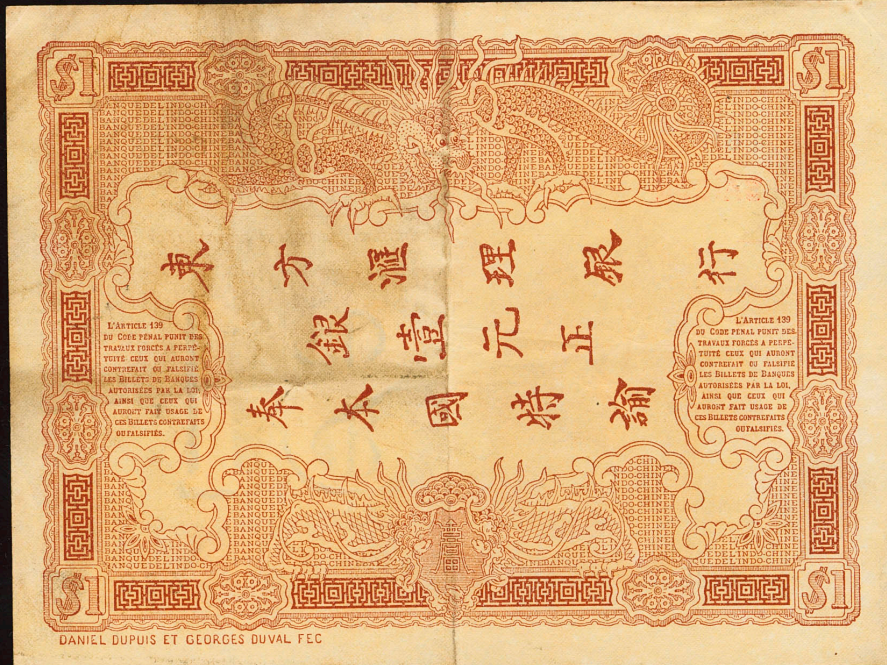 $1 $1
BANQUE DE L'INDO-CHINE
東方滙理銀行
銀壹元正
奉本國特諭
L'ARTICLE 139
DU CODE PÉNAL PUNIT DES
TRAVAUX FORCÉS A PERPÉ-
TUITÉ CEUX QUI AURONT
CONTREFAIT OU FALSIFIÉ
LES BILLETS DE BANQUES
AUTORISÉES PAR LA LOI,
AINSI QUE CEUX QUI
AURONT FAIT USAGE DE
CES BILLETS CONTREFAITS
OU FALSIFIÉS.
L'ARTICLE 139
DU CODE PÉNAL PUNIT DES
TRAVAUX FORCÉS A PERPÉ-
TUITÉ CEUX QUI AURONT
CONTREFAIT OU FALSIFIÉ
LES BILLETS DE BANQUES
AUTORISÉES PAR LA LOI,
AINSI QUE CEUX QUI
AURONT FAIT USAGE DE
CES BILLETS CONTREFAITS
OU FALSIFIÉS.
$1 $1
DANIEL DUPUIS ET GEORGES DUVAL FEC